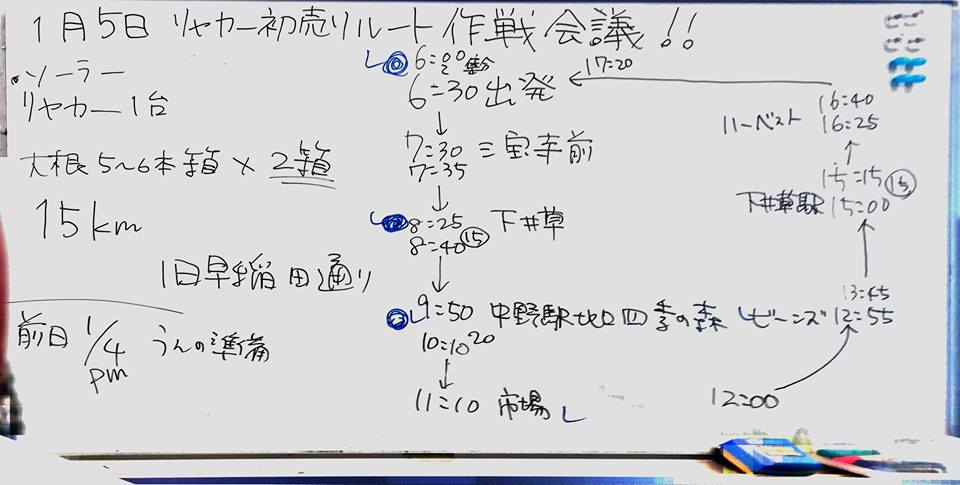 1月5日 リヤカー初売りルート作戦会議!!
・ソーラー
リヤカー1台
大根5〜6本 箱 × 2箱
15km
旧早稲田通り
前日 1/4 pm
準備
6=00 集合
6=30 出発
7=30 三宝寺前
7=35
8=25 下井草
8=40 ⑮
9=50 中野駅北口 四季の森
10=10 20
11=10 市場
12=00
ビーンズ 12=55
13=45
下井草駅 15=00
15=15 ⑮
ハーベスト 16=25
16=40
17=20